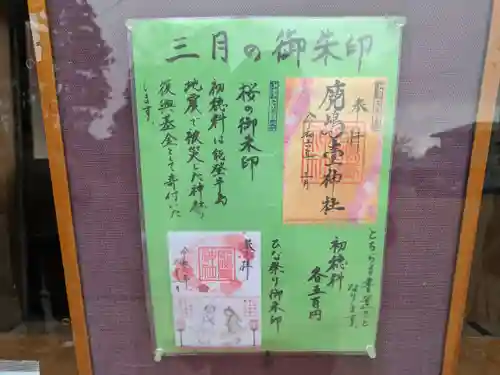 三月の御朱印
奉拝
鹿嶋吉田神社
三月
桜の御朱印
初穂料は能登半島
地震で被災した神社の
復興基金として寄付いた
します。
とちらも書置きと
なります。
初穂料
各五百円
ひな祭り御朱印
奉拝